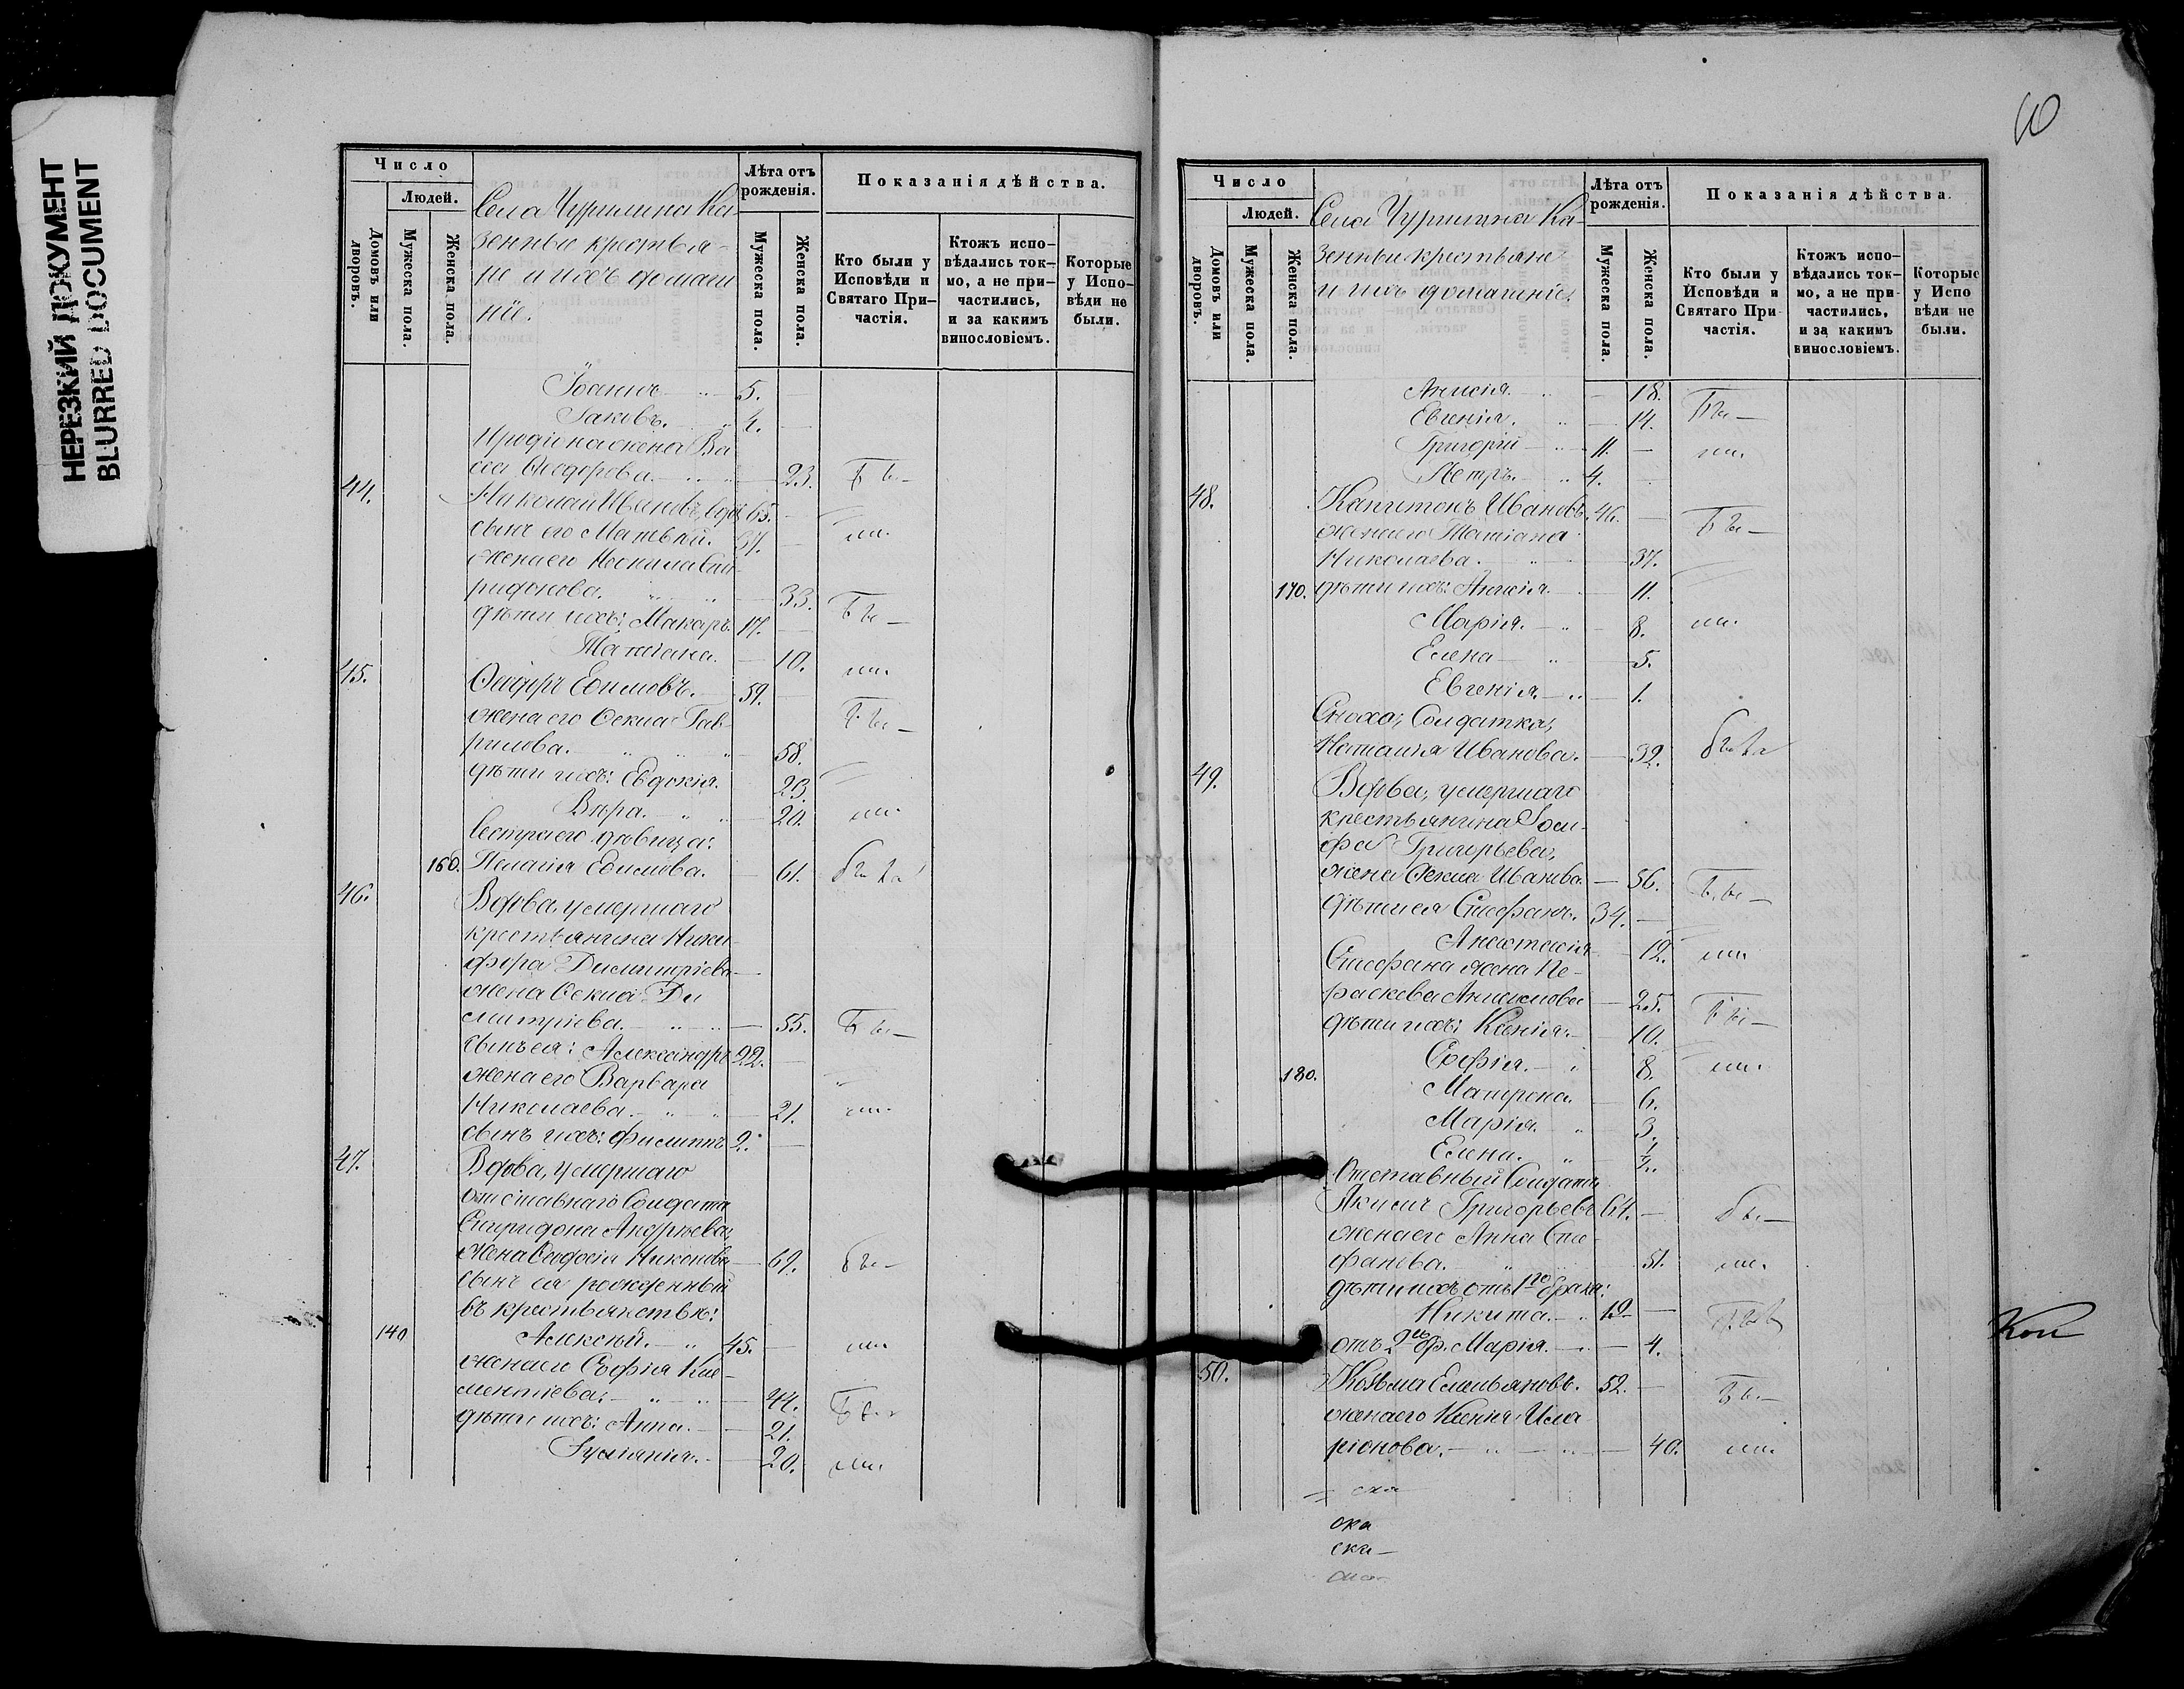 НЕРЕЗКИЙ ДОКУМЕНТ
BLURRED DOCUMENT
Число
Людей.
Домовъ или дворовъ.
Мужеска пола.
Женска пола.
Села Чурилина Ка-
зенные крестья-
не и ихъ домаш
ніе.
Лѣта отъ рожденія.
Мужеска пола.
Женска пола.
Показанія дѣйства.
Кто были у Исповѣди и Святаго При-частія.
Ктожъ испо-вѣдались ток-мо, а не при-частились, и за какимъ винословіемъ.
Которые у Испо-вѣди не были.
Іоаннъ 5.
Іаковъ. 4.
Иродіона жена Ва
сса Ѳеодорова. 23. Бы-
44. Николай Ивановъ, вдов 65.
сынъ его Матвѣй. 37. ли.
жена его Неонила Спи-
ридонова. 33.
дѣти ихъ: Макаръ. 17. Бы-
Татіана. 10. ли.
45. Ѳеодоръ Ефимовъ. 59.
жена его Ѳекла Гав- Бы-
рилова. 58.
дѣти ихъ: Евдокія. 23.
Вѣра. 20. ли.
Сестра его дѣвица:
160. Пелагія Ефимова. 61. была
46. Вдова, умершаго
крестьянина Ники-
фора Димитріева
жена Ѳекла Ди
митріева. 55. Бы-
сынъ ея: Александръ 22.
жена его Варвара
Николаева. 21. ли.
сынъ ихъ: Филиппъ 2.
47. Вдова, умершаго
отставнаго Солдата
Спиридона Андреева,
жена Ѳеодосія Никонова 69. бы-
сынъ ея рожденный
въ крестьянствѣ:
140 Алексѣй. 45. ли.
жена его Софія Кле-
ментіева. 44. Бы-
дѣти ихъ: Анна. 21.
Іуліанія. 20. ли.
60
Число
Людей.
Домовъ или дворовъ.
Мужеска пола.
Женска пола.
Села Чурилина Ка-
зенные крестьяне
и ихъ домашніе.
Лѣта отъ рожденія.
Мужеска пола.
Женска пола.
Показанія дѣйства.
Кто были у Исповѣди и Святаго При-частія.
Ктожъ испо-вѣдались ток-мо, а не при-частились, и за какимъ винословіемъ.
Которые у Испо вѣди не были.
Анисія. 18. Бы-
Евгенія. 14.
Григорій 11. ли.
Петръ. 4.
48. Капитонъ Ивановъ. 46. Бы-
жена его Татіана
Николаева. 37.
170. дѣти ихъ: Анисія. 11.
Марія. 8. ли.
Елена 5.
Евгенія. 1.
Сноха, Солдатка,
Наталія Иванова. 32. была
49. Вдова, умершаго
крестьянина Іоси-
фа Григорьева,
жена Ѳекла Иванова. 56. Бы-
дѣти ея Стефанъ. 34.
Анастасія 12. ли
Стефана жена Па-
раскева Анисимова 25. Бы-
дѣти ихъ: Ксенія. 10.
180. Софія. 8. ли.
Матрона. 6.
Марія. 3.
Елена. 1/2.
Отставный Солдатъ
Якимъ Григорьевъ 64. бы-
жена его Анна Сте-
фанова. 51. ли.
дѣти ихъ отъ 1го брака:
Никита. 12
отъ 2го бр. Марія. 4.
50. Козьма Емельяновъ. 52. Бы-
жена его Ксенія Ила
ріонова. 40. ли.
ска
ска
ска-